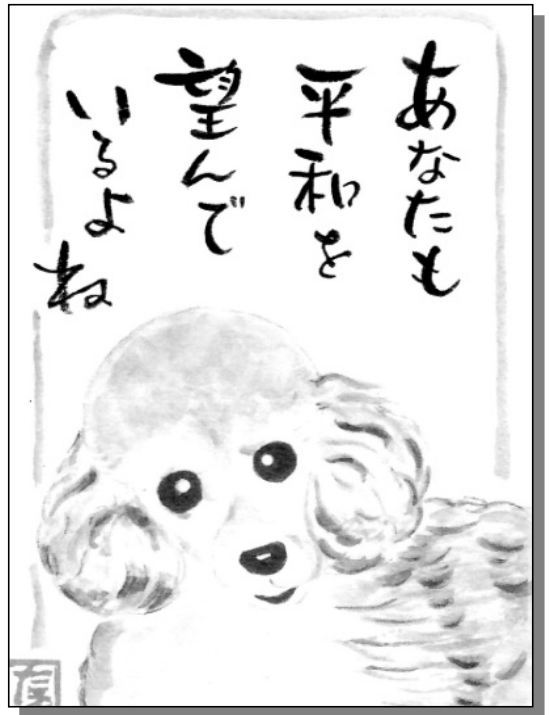 あなたも
平和を
望んで
いるよね